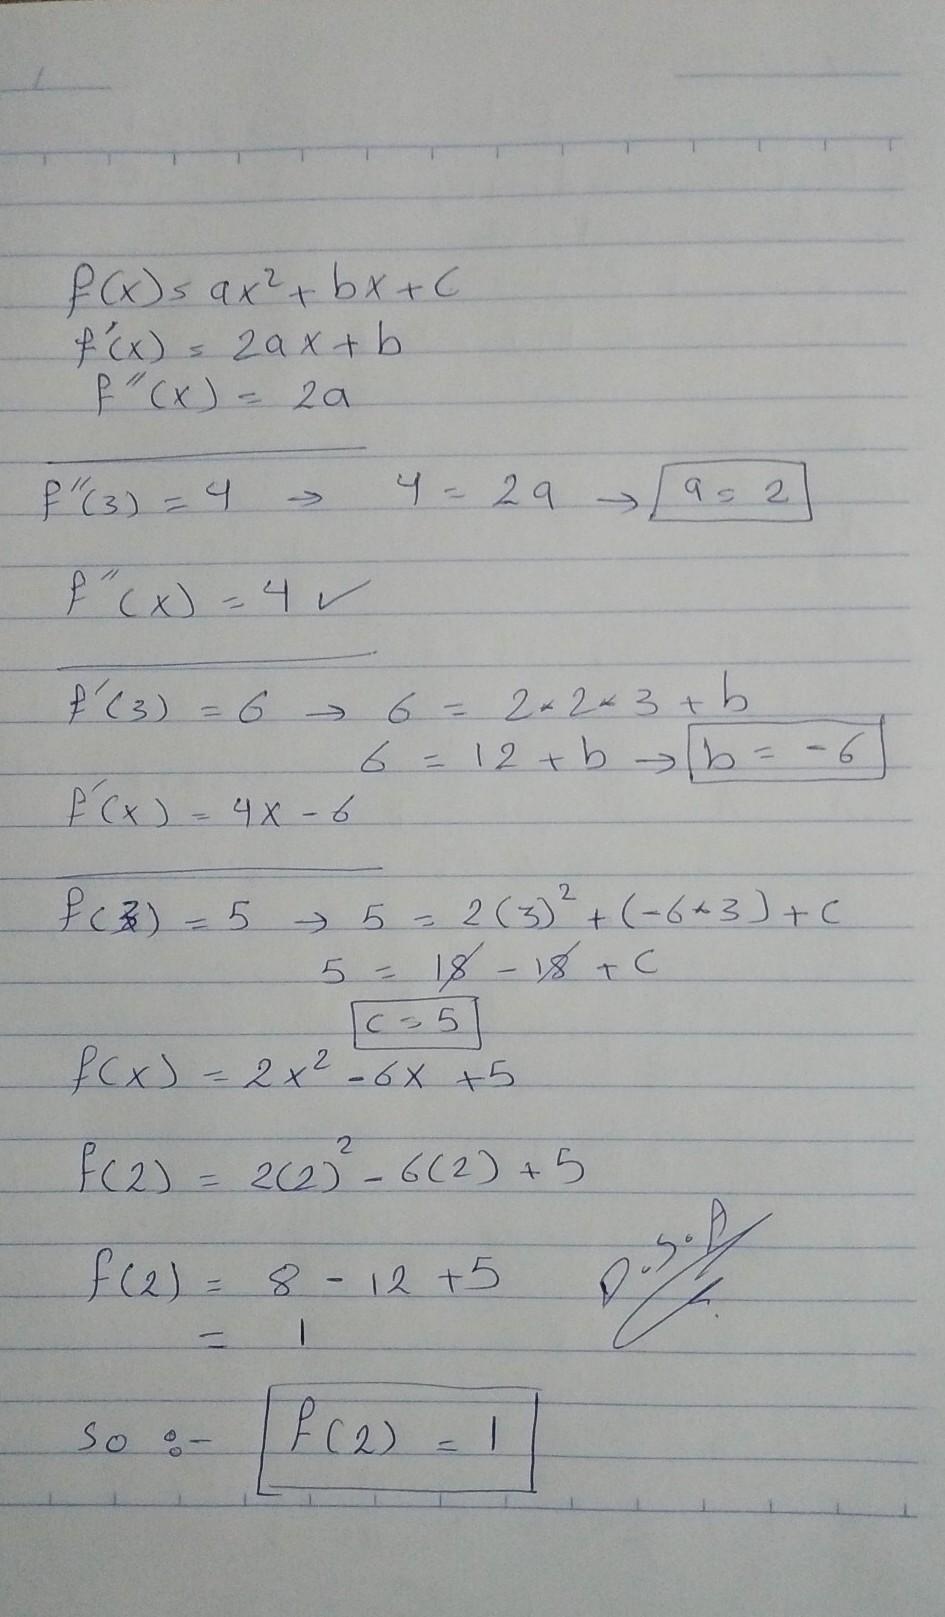 f(x) = ax² + bx + c
f'(x) = 2ax + b
f''(x) = 2a
f''(3) = 4 → 4 = 2a → a = 2
f''(x) = 4 ✓
f'(3) = 6 → 6 = 2*2*3 + b
6 = 12 + b → b = -6
f'(x) = 4x - 6
f(3) = 5 → 5 = 2(3)² + (-6*3) + c
5 = 18 - 18 + c
c = 5
f(x) = 2x² - 6x + 5
f(2) = 2(2)² - 6(2) + 5
f(2) = 8 - 12 + 5
= 1
so :- f(2) = 1